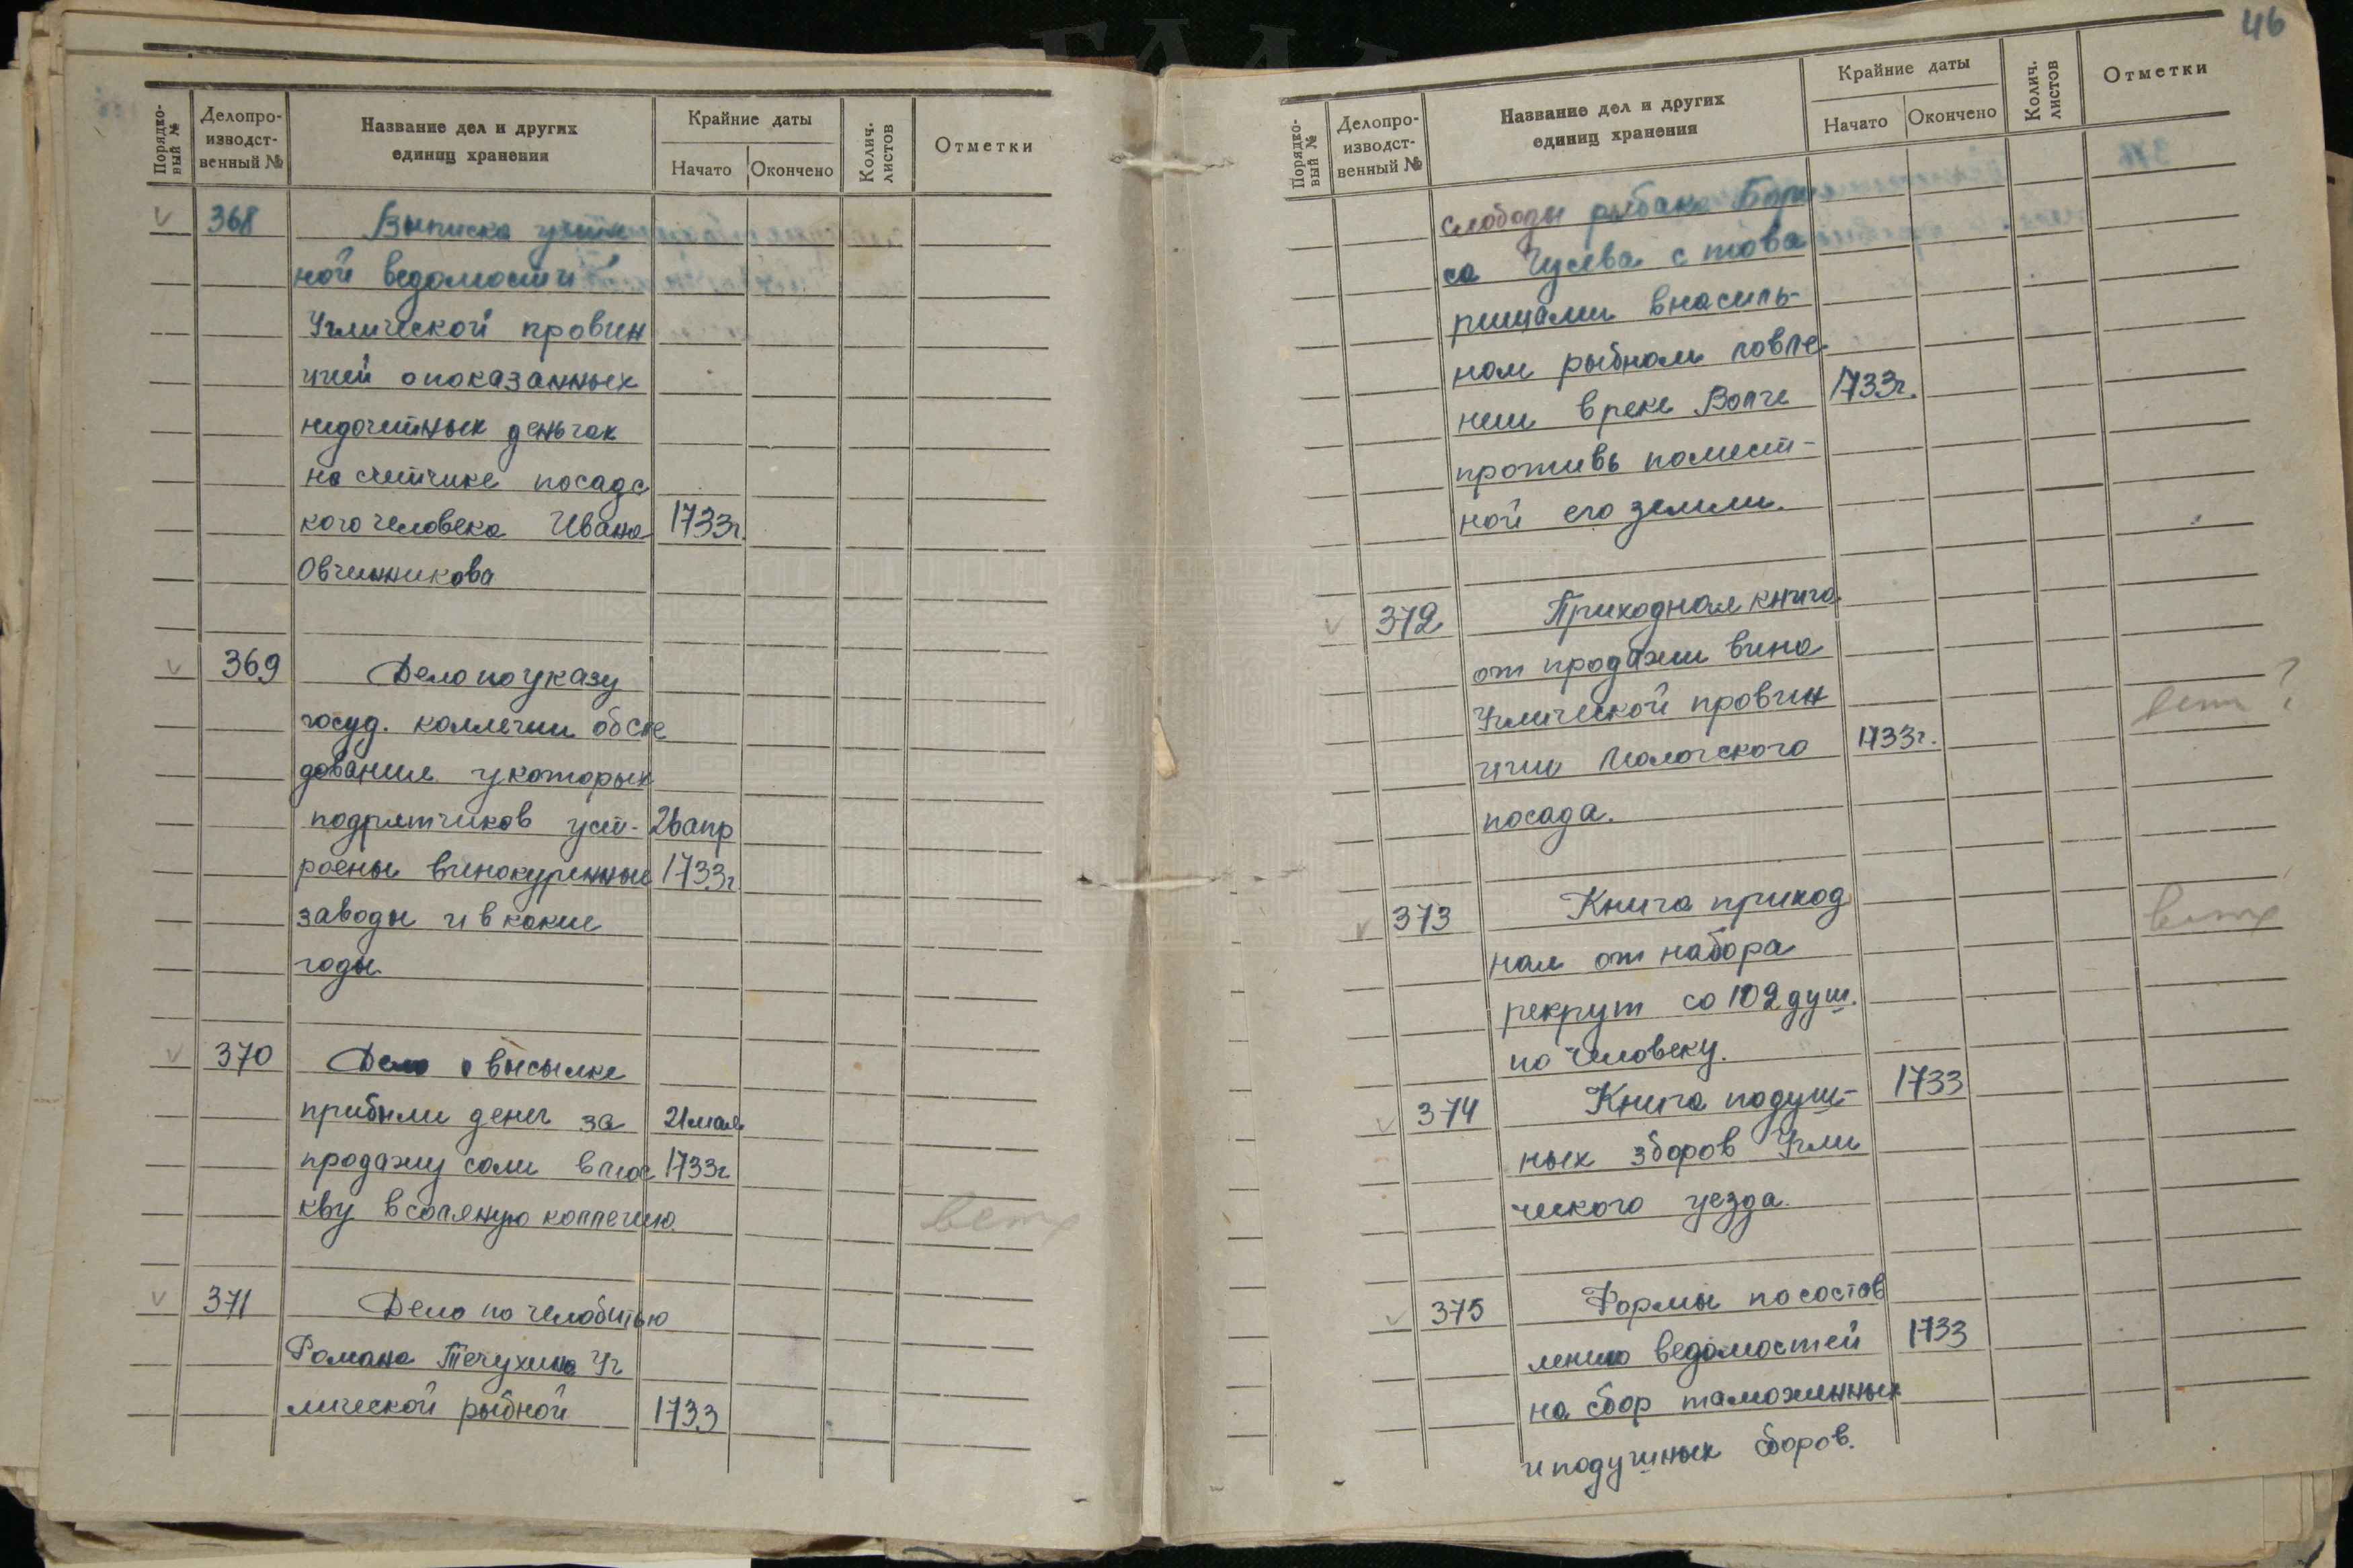 Порядко-
вый №
Делопро-
изводст-
венный №
Название дел и других
единиц хранения
Крайние даты
Начато
Окончено
Колич.
листов
Отметки
368
Выписка
ной ведомости
Углической провин
ций о показанных
недочетных деньгах
на счетчике посадс
кого человека Ивана 1733г.
Овчинникова
369
Дело по указу
госуд. коллегии обсле
дование у которых
подрятчиков уст- 26 апр
роены винокуренные 1733г
заводы и в какие
годы
370
Дело о высылке
прибыли денег за 21 мая
продажу соли в Мос 1733г
кву в соляную коллегию.
ветх
371
Дело по челобитью
Романа Течухина Уг
лической рыбной 1733
46
Порядко-
вый №
Делопро-
изводст-
венный №
Название дел и других
единиц хранения
Крайние даты
Начато
Окончено
Колич.
листов
Отметки
Слободы рыбака Бори
са Гусева с това
рищами внасиль-
ном рыбном ловле
нии в реке Волге 1733г.
противъ помест-
ной его земли.
372
Приходная книга
от продажи вина
Углической провин
ции Мологского 1733г.
посада.
ветх ?
373
Книга приход
ная от набора
рекрут со 102 душ.
по человеку.
ветх
374
Книга подуш- 1733
ных зборов Угли
ческого уезда.
375
Формы по состав
лению ведомостей 1733
на сбор таможенных
и подушных сборов.